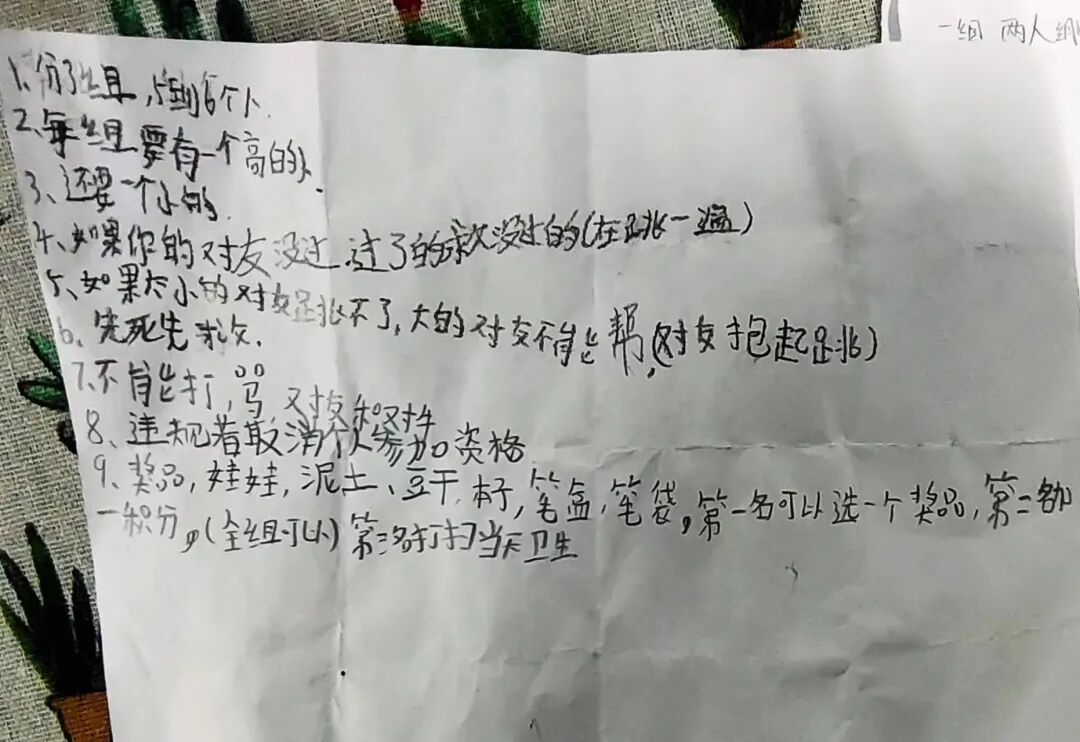 一组 两人组
1、分3组,5到6个人.
2、每组要有一个高的人.
3、还要一个小的.
4、如果你的对友没过.过了的救没过的(在跳一遍)
5、如果太小的对友跳不了,大的对友不能帮,(对友抱起跳)
6、先死先救.
7、不能打,骂 对友和对手
8、违规者取消个人参加资格
9、奖品,娃娃,泥土、豆干,本子,笔盒,笔袋,第一名可以选一个奖品,第二名加
一积分,(全组可以) 第三名打扫当天卫生